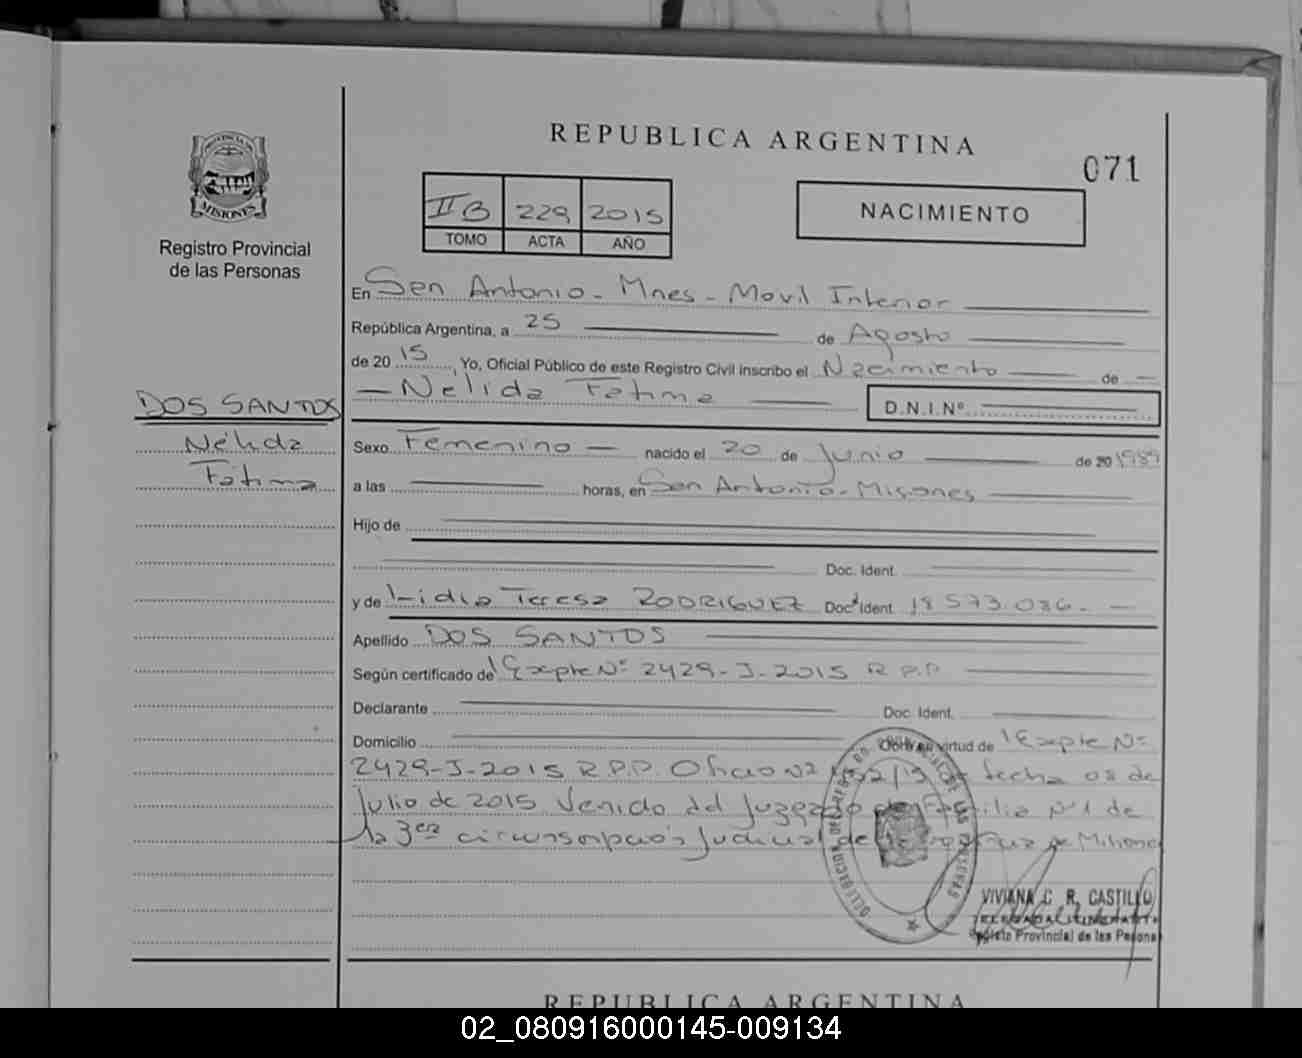 REPUBLICA ARGENTINA
071
PROVINCIA DE
MISIONES
Registro Provincial
de las Personas
II B 229 2015
TOMO ACTA AÑO
NACIMIENTO
En San Antonio - Mnes - Movil Interior
República Argentina, a 25 de Agosto
de 20 15, Yo, Oficial Público de este Registro Civil inscribo el Nacimiento de
Nelida Fatima
D.N.I.Nº
DOS SANTOS
Nélida
Fátima
Sexo Femenino nacido el 20 de Junio de 20 1989
a las horas, en San Antonio - Misiones
Hijo de
Doc. Ident.
y de Lidia Teresa RODRIGUEZ Doc. Ident. 18.573.086.
Apellido DOS SANTOS
Según certificado de Expte Nº 2429-J-2015 R.P.P
Declarante Doc. Ident.
Domicilio Obra en virtud de Expte Nº
2429-J-2015 R.P.P. Oficio Nº /15 de fecha 08 de
Julio de 2015 Venido del Juzgado de Familia Nº 1 de
la 3era circunscripción Judicial de la de Misiones
VIVIANA C. R. CASTILLO
Registro Provincial de las Personas
REPUBLICA ARGENTINA
02_080916000145-009134